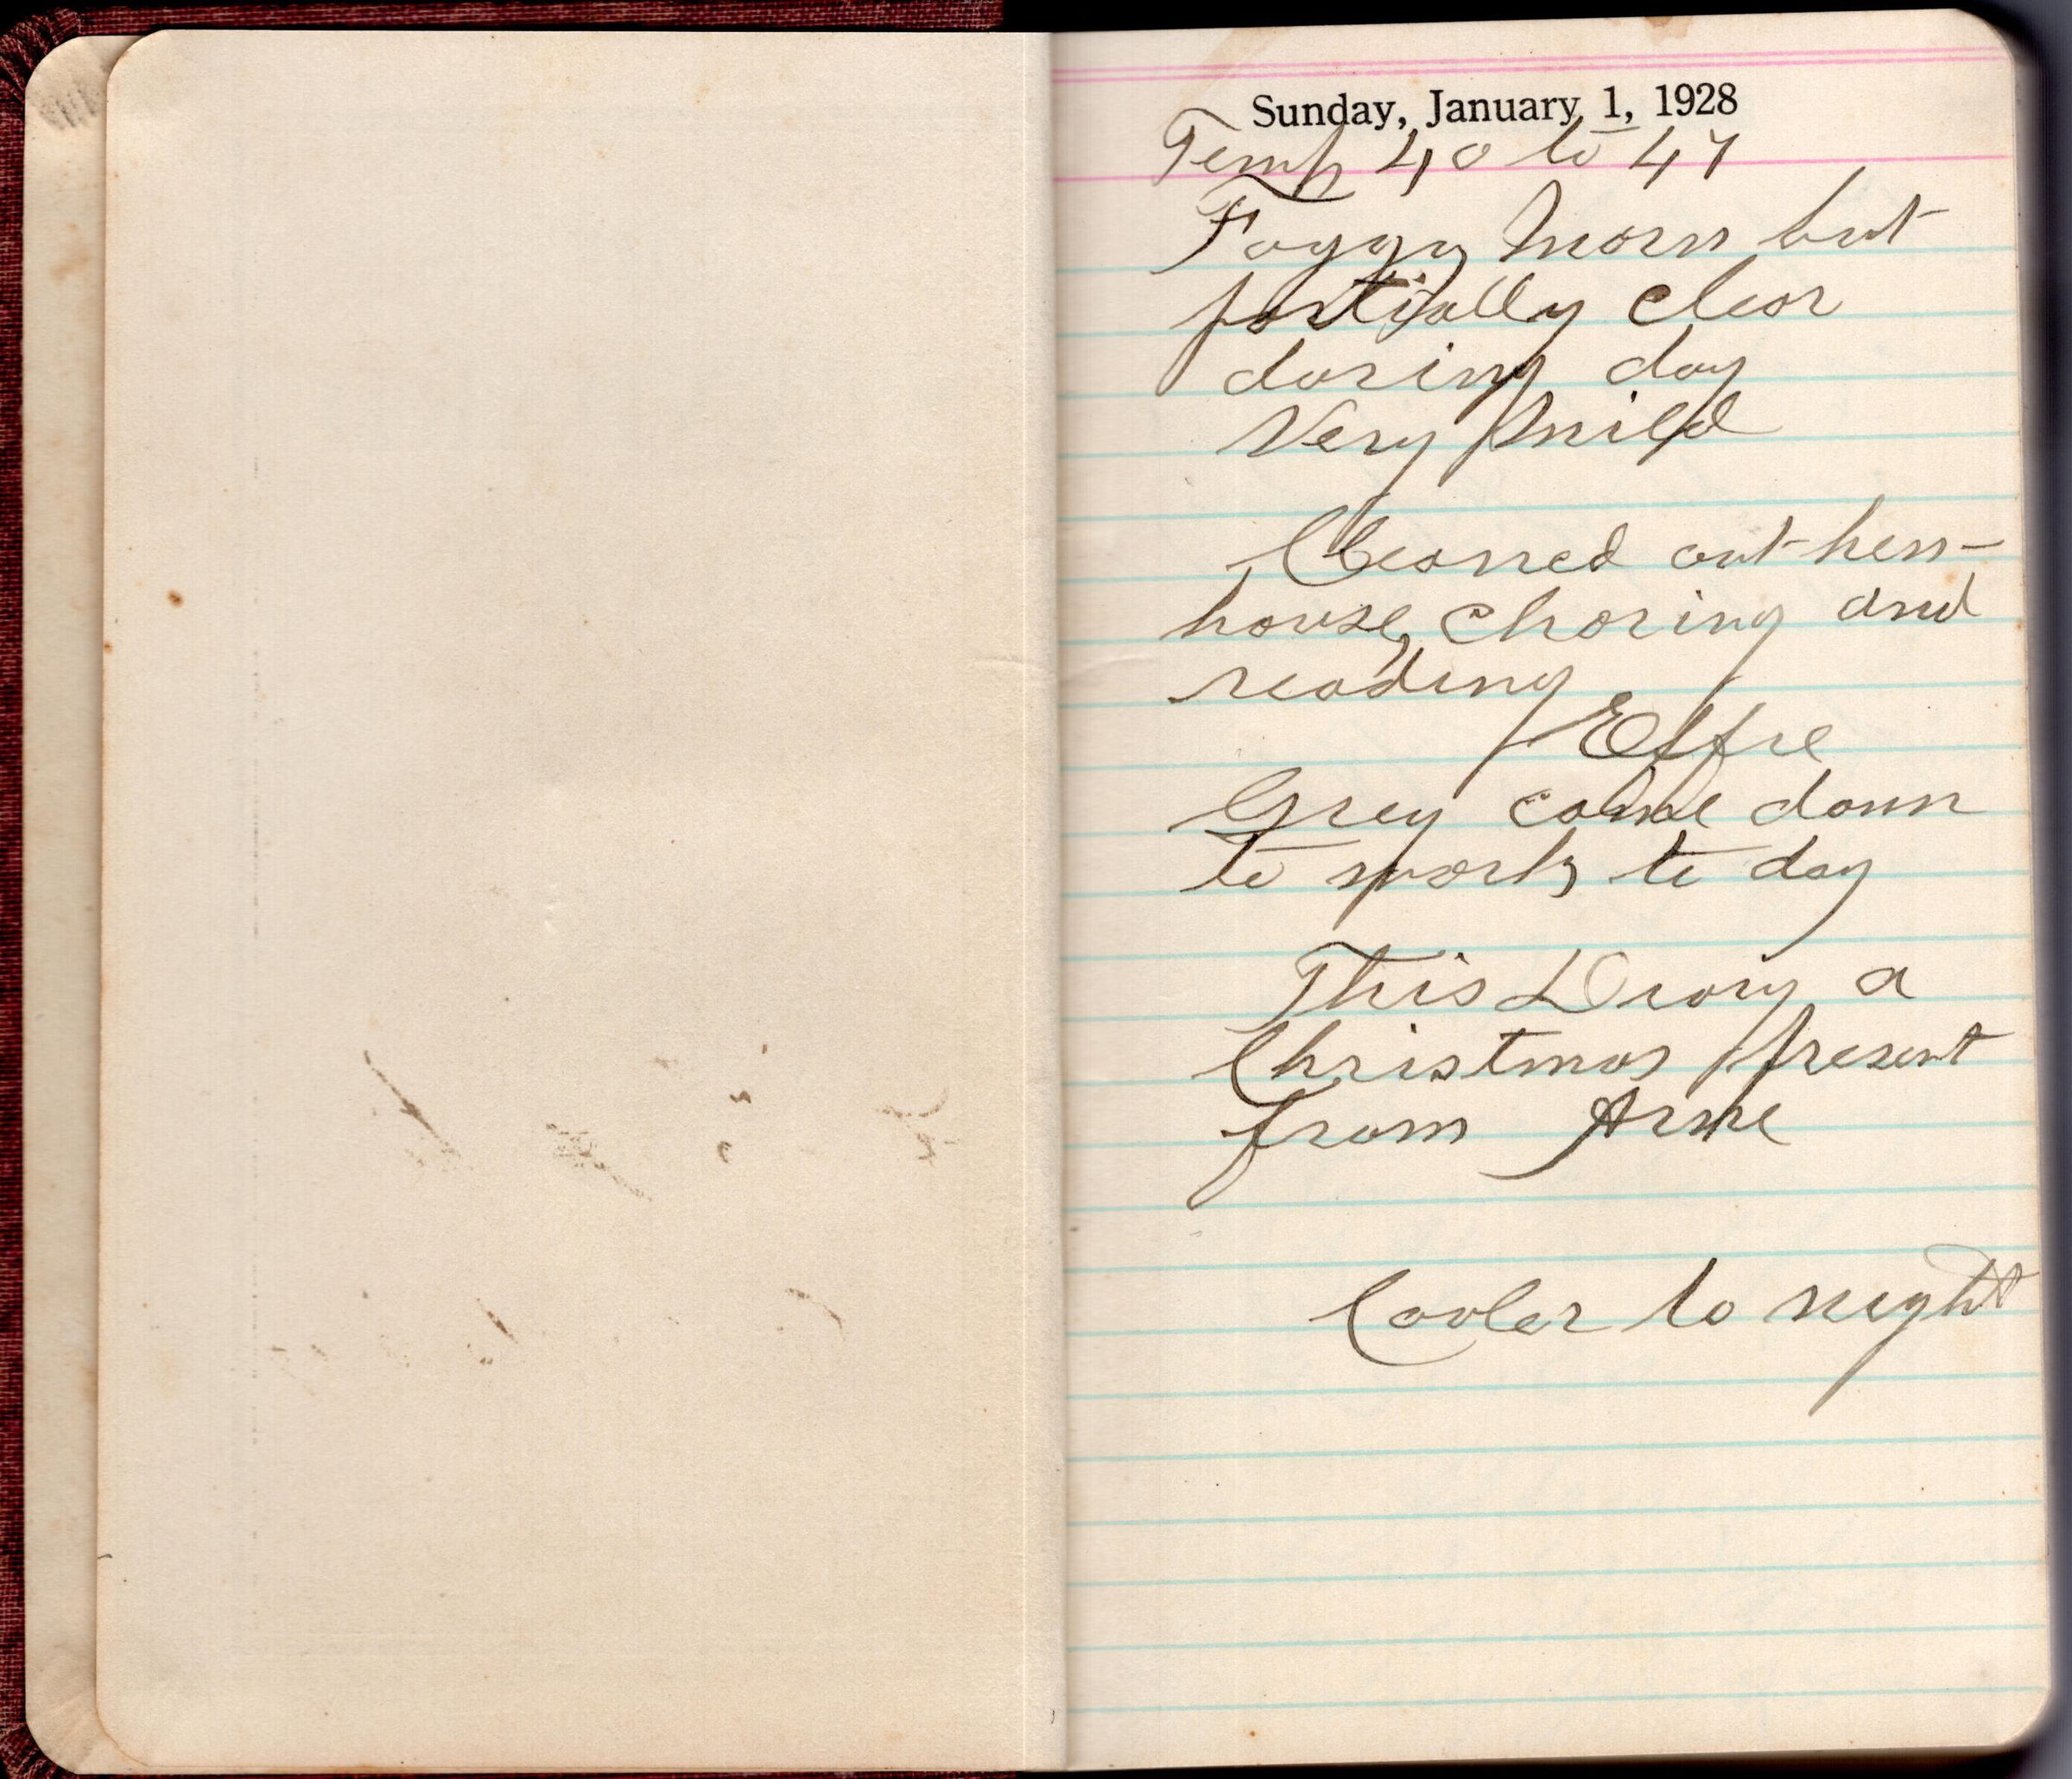 Sunday, January 1, 1928
Temp 40 to 47
Foggy Morn but
partially clear
during day
Very Mild
Cleaned out hen-
house, choring and
reading
Effie
Grey came down
to work to day
This Diary a
Christmas present
from Arme
Cooler to night